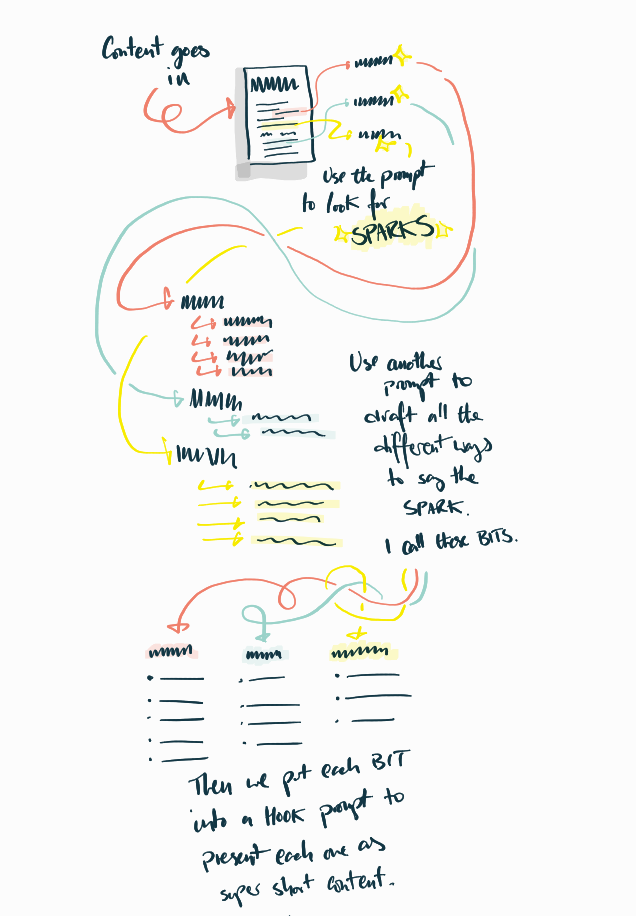 Content goes
in
Use the prompt
to look for
SPARKS
Use another
prompt to
draft all the
different ways
to say the
SPARK.
I call these BITS.
Then we put each BIT
into a HOOK prompt to
present each one as
super short content.